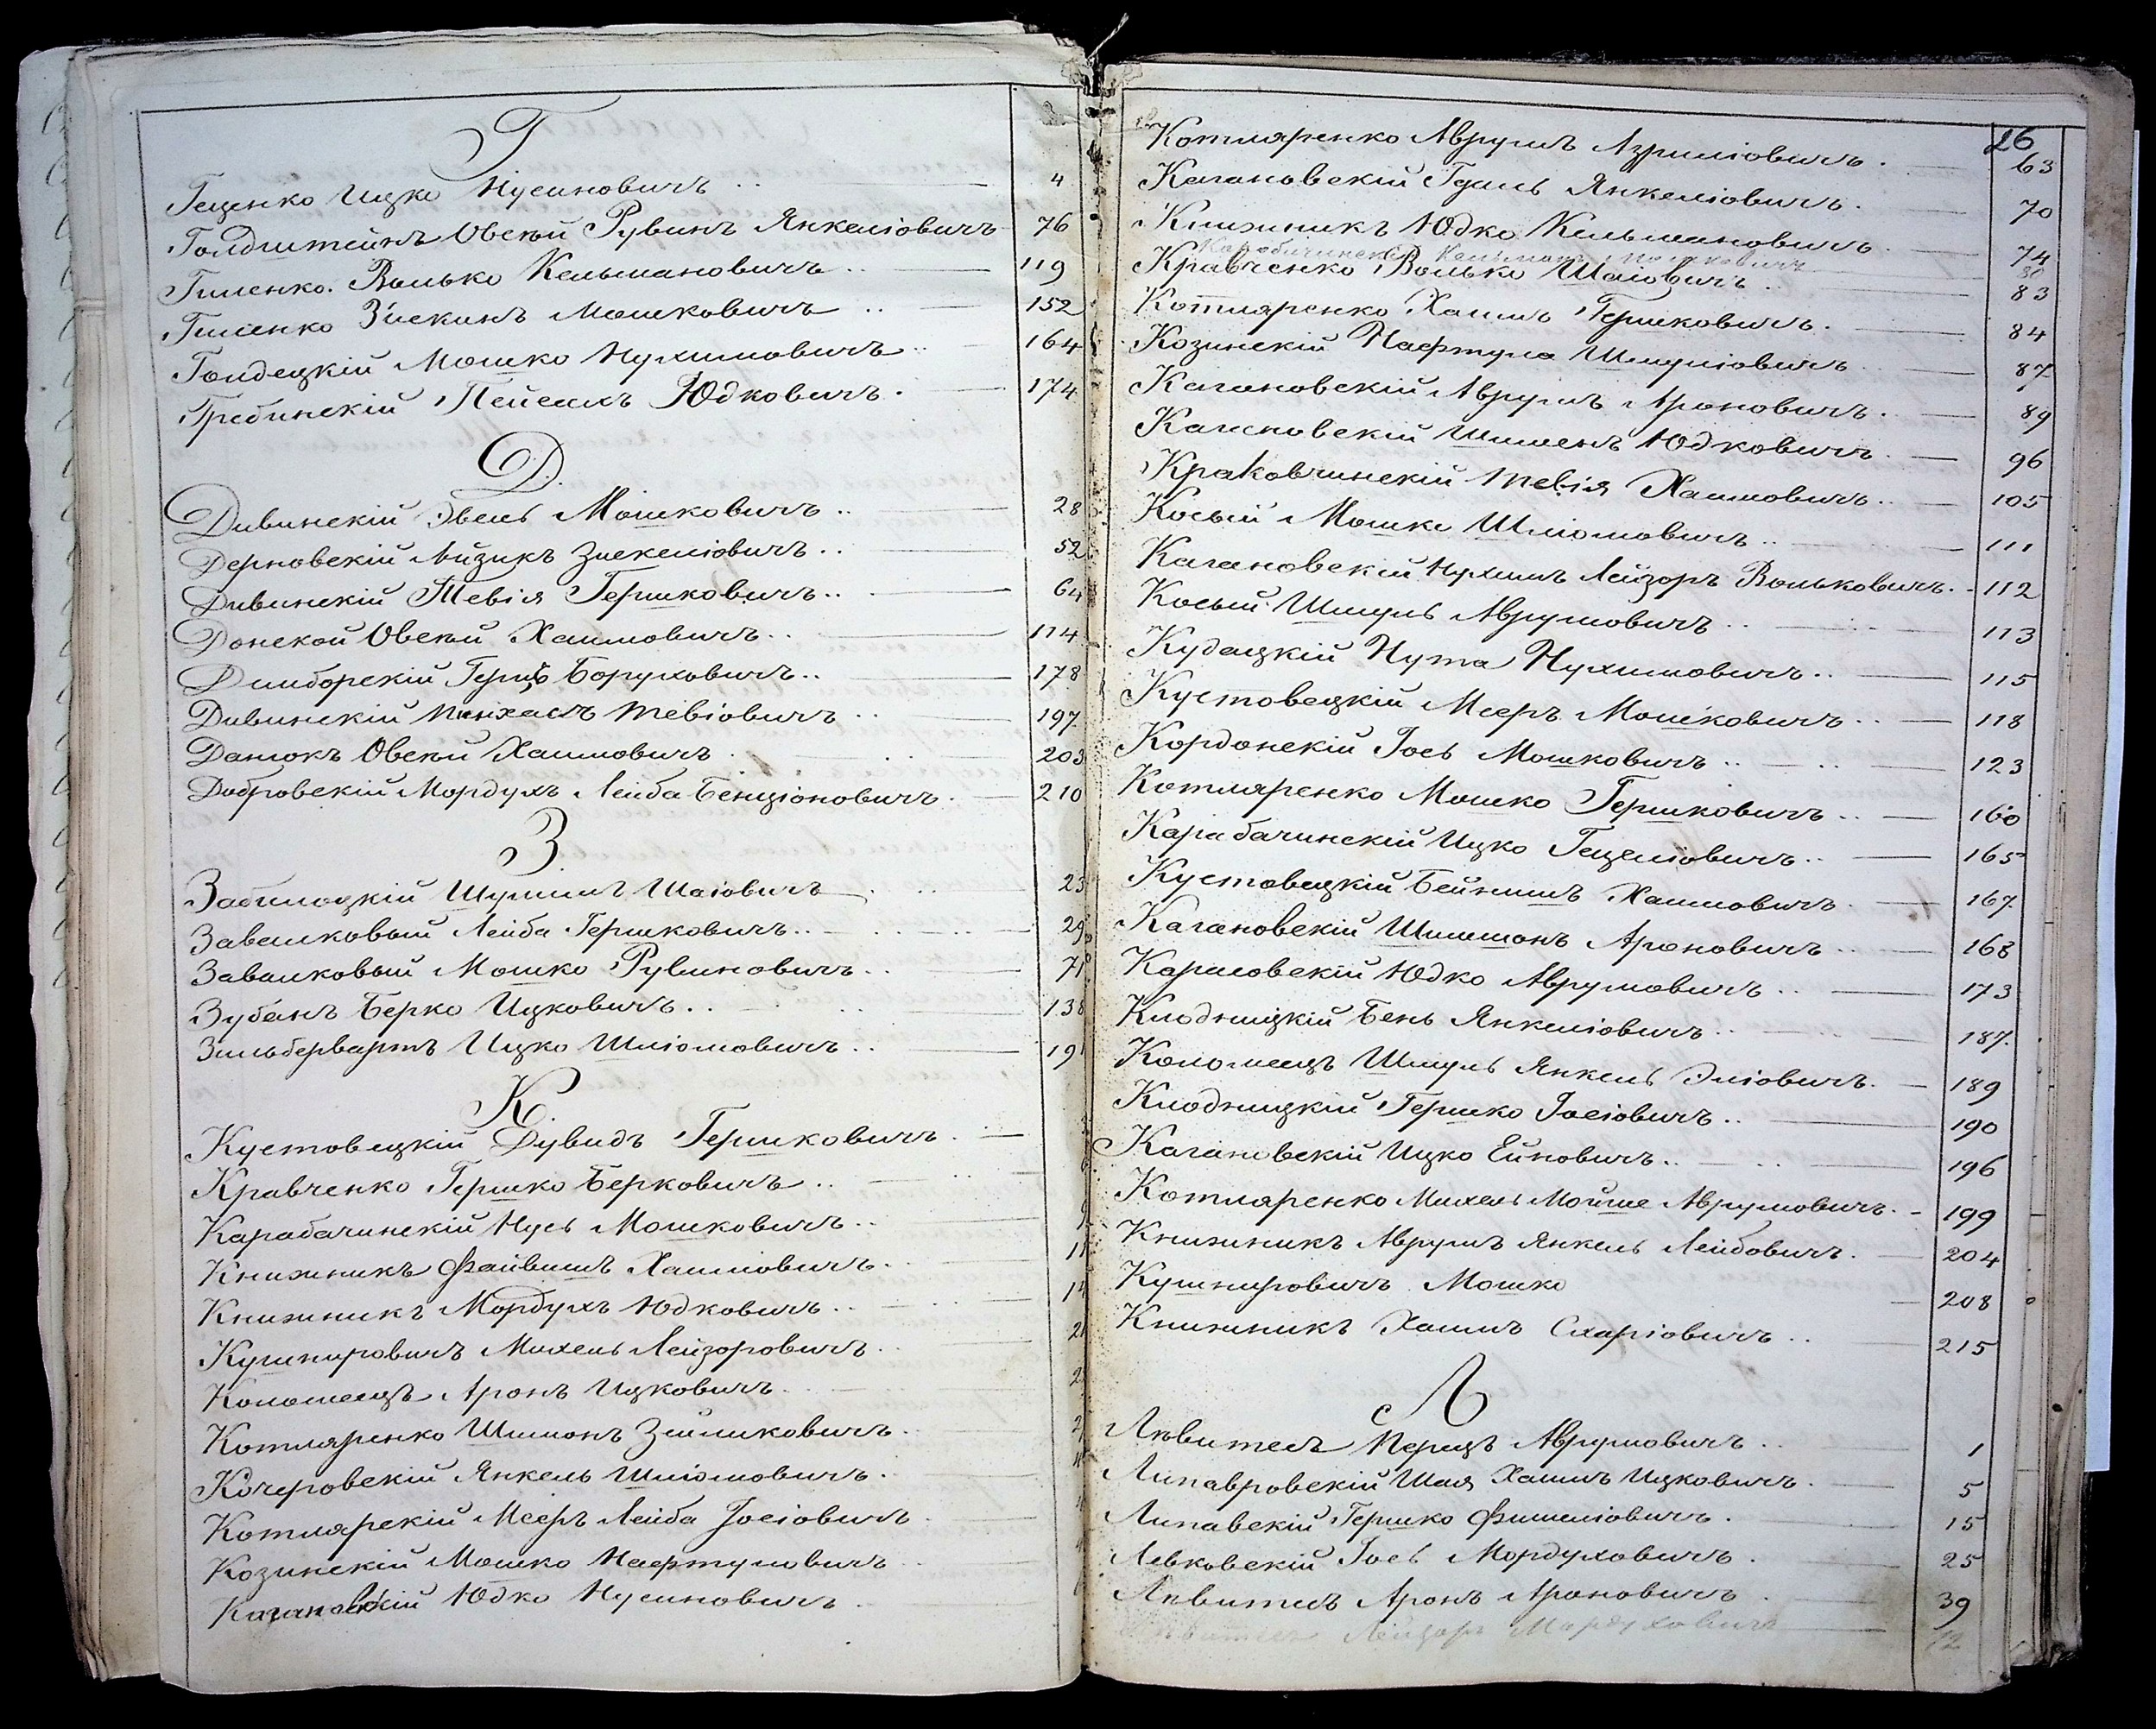 Г
Геценко Ицко Нусиновичъ .. 4
Голдштейнъ Овсѣй Рувинъ Янкеліовичъ 76
Гиленко Волько Кельмановичъ .. 119
Гиленко Зискинъ Мошковичъ .. 152
Голдецкій Мошко Нухимовичъ .. 164
Гребинскій Пейсахъ Юдковичъ . 174
Д.
Дивинскій Эвель Мошковичъ .. 28
Дерновскій Айзикъ Зискеліовичъ .. 52
Дивинскій Тевія Гершковичъ .. 64
Донской Овсѣй Хаимовичъ .. 114
Димборскій Герцъ Боруховичъ .. 178
Дивинскій Пинхасъ Тевіовичъ .. 197
Данюкъ Овсѣй Хаимовичъ . 203
Добровскій Мордухъ Лейба Бенціоновичъ . 210
З.
Забилоцкій Шулимъ Шаіовичъ 23
Завалковый Лейба Гершковичъ .. 29
Завалковый Мошко Рувиновичъ .. 71
Зубанъ Берко Ицковичъ .. 138
Зильбервартъ Ицко Шліомовичъ .. 191
К.
Кустовецкій Дувидъ Гершковичъ .
Кравченко Гершко Берковичъ ..
Карабачинскій Нусь Мошковичъ ..
Книжникъ Файвишъ Хаимовичъ .
Книжникъ Мордухъ Юдковичъ ..
Кушнировичъ Михель Лейзоровичъ .
Коломеецъ Аронъ Ицковичъ .
Котляренко Шимонъ Зейликовичъ .
Кочеровскій Янкель Шліомовичъ .
Котлярскій Мееръ Лейба Іосіовичъ .
Козинскій Мошко Нафтуловичъ
Кагановскій Юдко Нусиновичъ .
26
Котляренко Аврумъ Азриліовичъ . 63
Кагановскій Гдаль Янкеліовичъ . 70
Книжникъ Юдко Кельмановичъ 74
Карабачинскій Кельманъ Мошковичъ 80
Кравченко Волько Шаіовичъ .. 83
Котляренко Хаимъ Гершковичъ . 84
Козинскій Нафтула Шмуліовичъ 87
Кагановскій Аврумъ Ароновичъ . 89
Кагановскій Шимонъ Юдковичъ . 96
Краковчинскій Тевія Хаимовичъ .. 105
Косый Мошко Шліомовичъ .. 111
Кагановскій Нухимъ Лейзоръ Вольковичъ . 112
Косый Шмуль Аврумовичъ .. 113
Кудецкій Нута Нухимовичъ .. 115
Кустовецкій Мееръ Мошковичъ .. 118
Кордонскій Іось Мошковичъ .. 123
Котляренко Мошко Гершковичъ .. 160
Карабачинскій Ицко Гецеліовичъ .. 165
Кустовецкій Бейнишъ Хаимовичъ . 167
Кагановскій Шимшонъ Ароновичъ .. 168
Карповскій Юдко Аврумовичъ .. 173
Клодницкій Бень Янкеліовичъ .. 187
Коломеецъ Шмуль Янкель Эліовичъ . 189
Клодницкій Гершко Іосіовичъ .. 190
Кагановскій Ицко Ейновичъ .. 196
Котляренко Михель Мойше Аврумовичъ . 199
Книжникъ Аврумъ Янкель Лейбовичъ . 204
Кушнировичъ Мошко 208
Книжникъ Хаимъ Схаріовичъ .. 215
Л
Лѣвитесъ Перецъ Аврумовичъ .. 1
Липавровскій Шая Хаимъ Ицковичъ . 5
Липавскій Гершко Фишеліовичъ . 15
Левковскій Іось Мордуховичъ . 25
Лѣвитесъ Аронъ Ароновичъ . 39
Лейзоръ Мордуховичъ